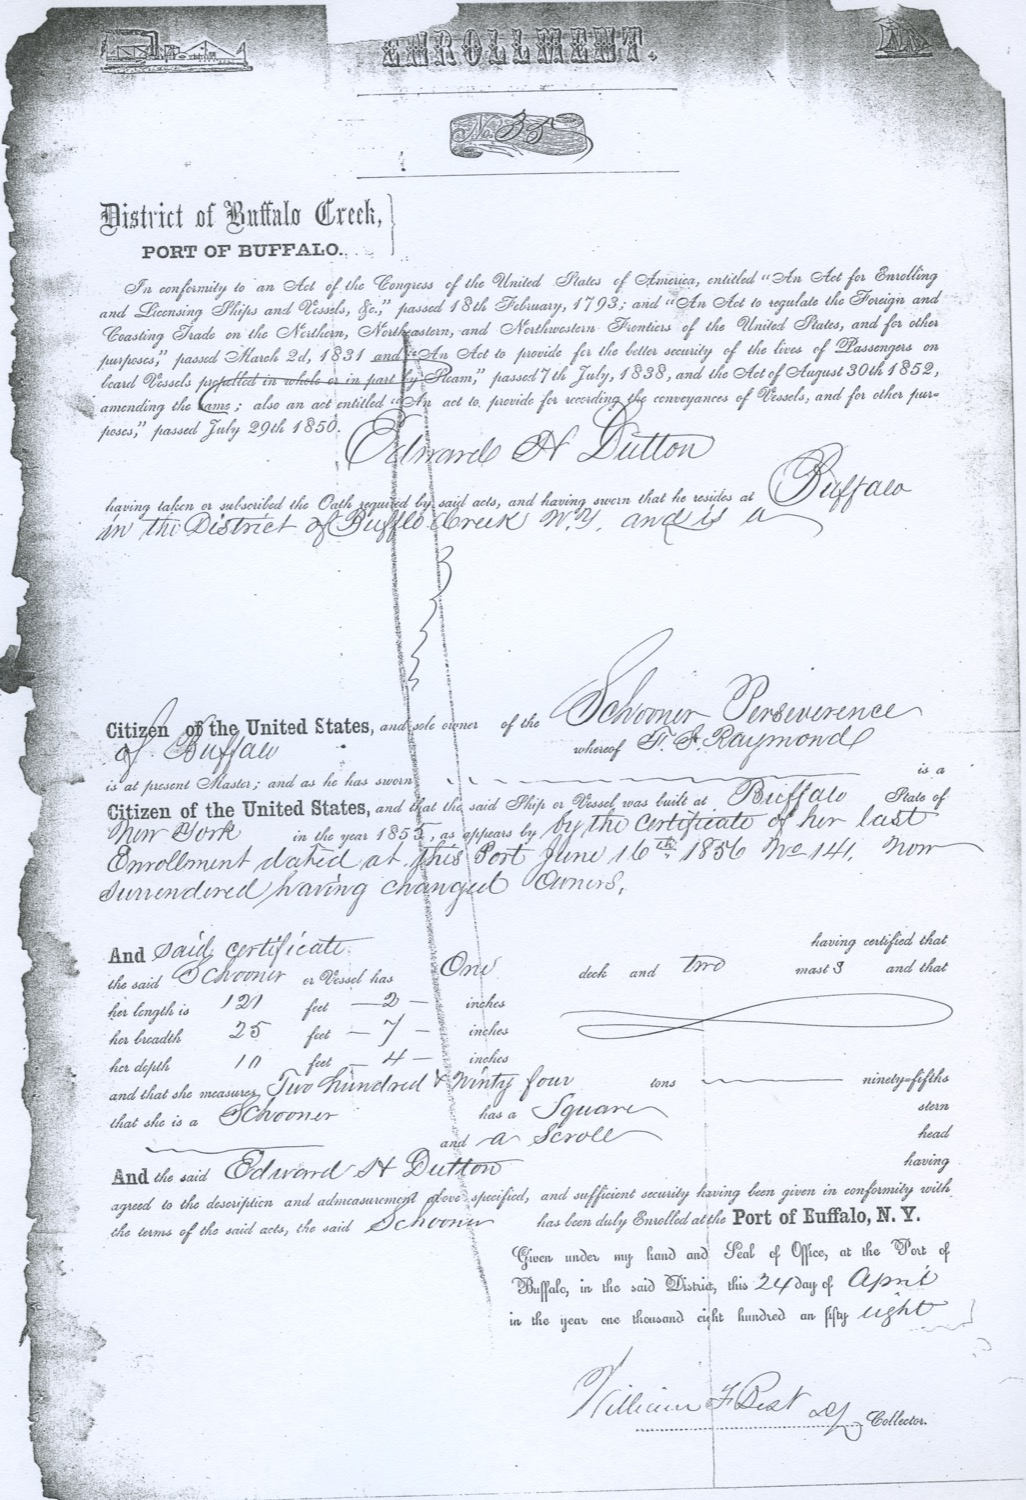 ENROLLMENT.
No. 35
District of Buffalo Creek,
PORT OF BUFFALO.
In conformity to an Act of the Congress of the United States of America, entitled "An Act for Enrolling
and Licensing Ships and Vessels, &c.," passed 18th February, 1793; and "An Act to regulate the Foreign and
Coasting Trade on the Northern, Northeastern, and Northwestern Frontiers of the United States, and for other
purposes," passed March 2d, 1831 and "An Act to provide for the better security of the lives of Passengers on
board Vessels propelled in whole or in part by Steam," passed 7th July, 1838, and the Act of August 30th 1852,
amending the same; also an act entitled "An act to provide for recording the conveyances of Vessels, and for other pur-
poses," passed July 29th 1850.
Edward H Dutton
having taken or subscribed the Oath required by said acts, and having sworn that he resides at Buffalo
in the District of Bufflo Creek N.Y. and is a
Citizen of the United States, and sole owner of the Schooner Perseverence
of Buffalo whereof F. S. Raymond
is at present Master; and as he has sworn is a
Citizen of the United States, and that the said Ship or Vessel was built at Buffalo State of
New York in the year 1855, as appears by by the certificate of her last
Enrollment dated at this Port June 16th 1856 No 141. Now
surrendered having changed Owners.
And said certificate having certified that
the said Schooner or Vessel has One deck and two mast s and that
her length is 121 feet 2 inches
her breadth 25 feet 7 inches
her depth 10 feet 4 inches
and that she measures Two hundred & Ninty four tons ninety=fifths
that she is a Schooner has a Square stern
and a Scroll head
And the said Edward H Dutton having
agreed to the description and admeasurement above specified, and sufficient security having been given in conformity with
the terms of the said acts, the said Schooner has been duly Enrolled at the Port of Buffalo, N. Y.
Given under my hand and Seal of Office, at the Port of
Buffalo, in the said District, this 24 day of April
in the year one thousand eight hundred an fifty eight
William F Best Dy Collector.